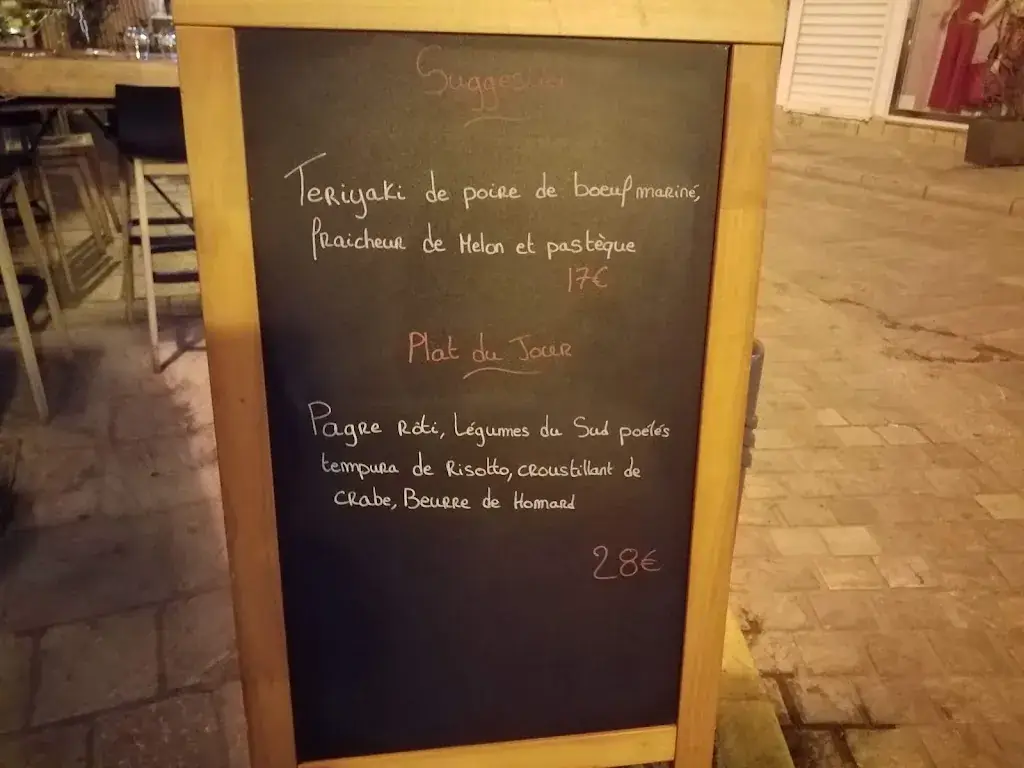 Suggestion
Teriyaki de poire de boeuf mariné,
fraicheur de Melon et pastèque
17€
Plat du Jour
Pagre Rôti, Légumes du Sud poelés
tempura de Risotto, croustillant de
crabe, Beurre de Homard
28€